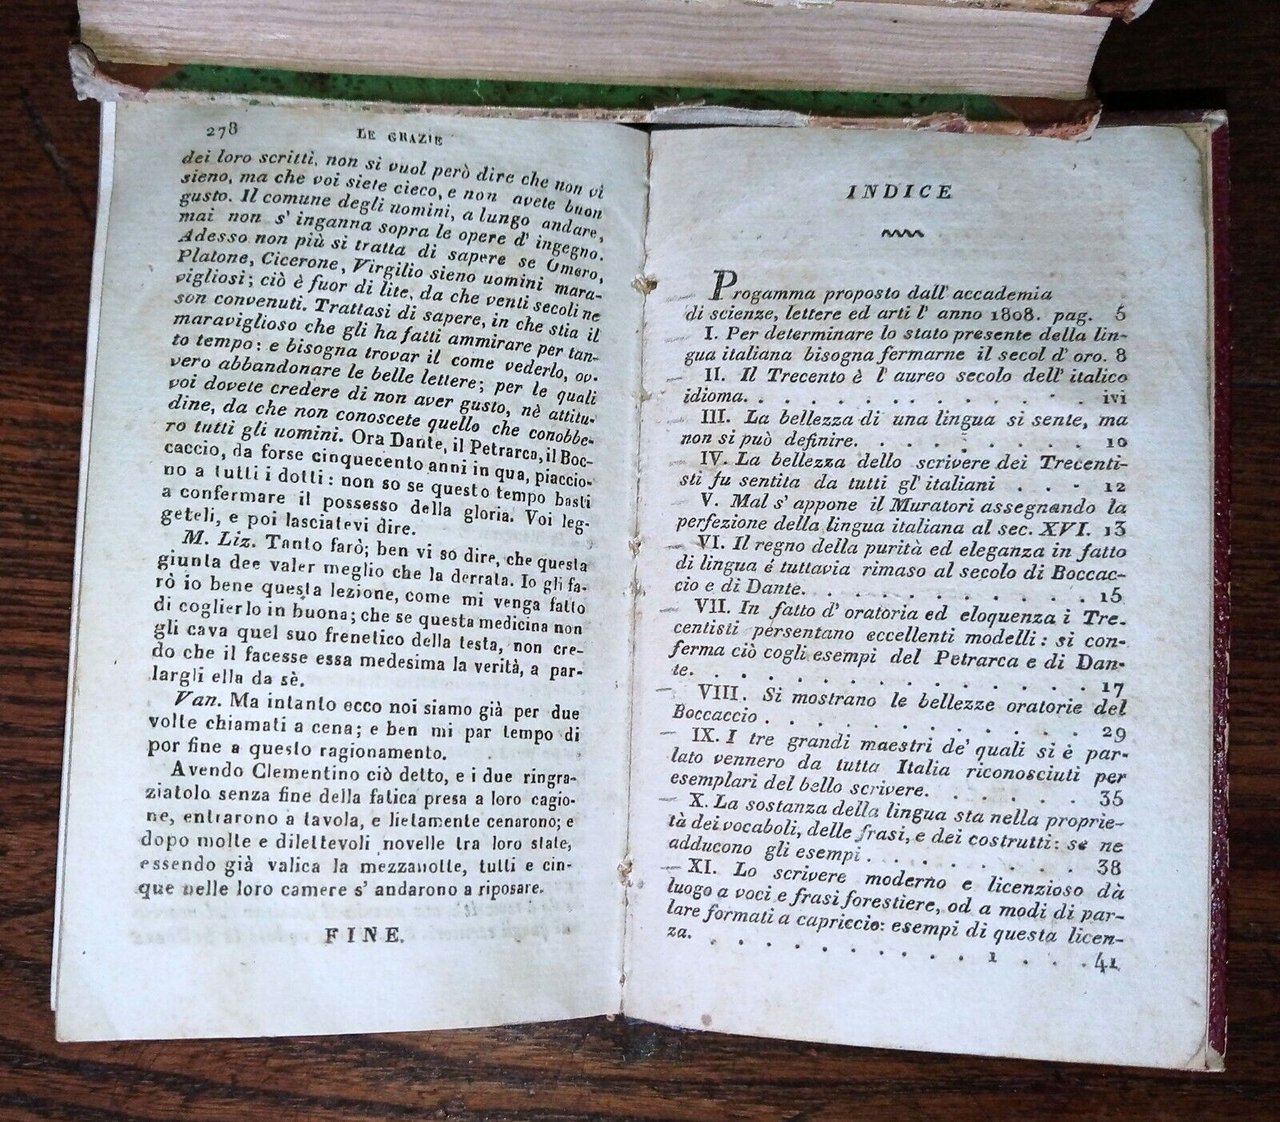 278 LE GRAZIE
dei loro scritti, non si vuol però dire che non vi
sieno, ma che voi siete cieco, e non avete buon
gusto. Il comune degli uomini, a lungo andare,
mai non s' inganna sopra le opere d' ingegno.
Adesso non più si tratta di sapere se Omero,
Platone, Cicerone, Virgilio sieno uomini mara-
vigliosi; ciò è fuor di lite, da che venti secoli ne
son convenuti. Trattasi di sapere, in che stia il
maraviglioso che gli ha fatti ammirare per tan-
to tempo: e bisogna trovar il come vederlo, ov-
vero abbandonare le belle lettere; per le quali
voi dovete credere di non aver gusto, nè attitu-
dine, da che non conoscete quello che conobbe-
ro tutti gli uomini. Ora Dante, il Petrarca, il Boc-
caccio, da forse cinquecento anni in qua, piaccio-
no a tutti i dotti: non so se questo tempo basti
a confermare il possesso della gloria. Voi leg-
geteli, e poi lasciatevi dire.
M. Liz. Tanto farò; ben vi so dire, che questa
giunta dee valer meglio che la derrata. Io gli fa-
rò io bene questa lezione, come mi venga fatto
di coglierlo in buona; che se questa medicina non
gli cava quel suo frenetico della testa, non cre-
do che il facesse essa medesima la verità, a par-
largli ella da sè.
Van. Ma intanto ecco noi siamo già per due
volte chiamati a cena; e ben mi par tempo di
por fine a questo ragionamento.
Avendo Clementino ciò detto, e i due ringra-
ziatolo senza fine della fatica presa a loro cagio-
ne, entrarono a tavola, e lietamente cenarono; e
dopo molte e dilettevoli novelle tra loro state,
essendo già valica la mezzanotte, tutti e cin-
que nelle loro camere s' andarono a riposare.
FINE.
INDICE
Progamma proposto dall' accademia
di scienze, lettere ed arti l' anno 1808. pag. 5
I. Per determinare lo stato presente della lin-
gua italiana bisogna fermarne il secol d' oro. 8
II. Il Trecento è l' aureo secolo dell' italico
idioma. . . . . . . . . . . . . . . ivi
III. La bellezza di una lingua si sente, ma
non si può definire. . . . . . . . . . 10
IV. La bellezza dello scrivere dei Trecenti-
sti fu sentita da tutti gl' italiani . . . 12
V. Mal s' appone il Muratori assegnando la
perfezione della lingua italiana al sec. XVI. 13
VI. Il regno della purità ed eleganza in fatto
di lingua é tuttavia rimaso al secolo di Boccac-
cio e di Dante. . . . . . . . . . . . 15
VII. In fatto d' oratoria ed eloquenza i Tre-
centisti persentano eccellenti modelli: si con-
ferma ciò cogli esempi del Petrarca e di Dan-
te. . . . . . . . . . . . . . . . 17
VIII. Si mostrano le bellezze oratorie del
Boccaccio . . . . . . . . . . . . . 29
IX. I tre grandi maestri de' quali si è par-
lato vennero da tutta Italia riconosciuti per
esemplari del bello scrivere. . . . . . . 35
X. La sostanza della lingua sta nella proprie-
tà dei vocaboli, delle frasi, e dei costrutti: se ne
adducono gli esempi . . . . . . . . . 38
XI. Lo scrivere moderno e licenzioso dà
luogo a voci e frasi forestiere, od a modi di par-
lare formati a capriccio: esempi di questa licen-
za. . . . . . . . . . . . 1 . . . 41